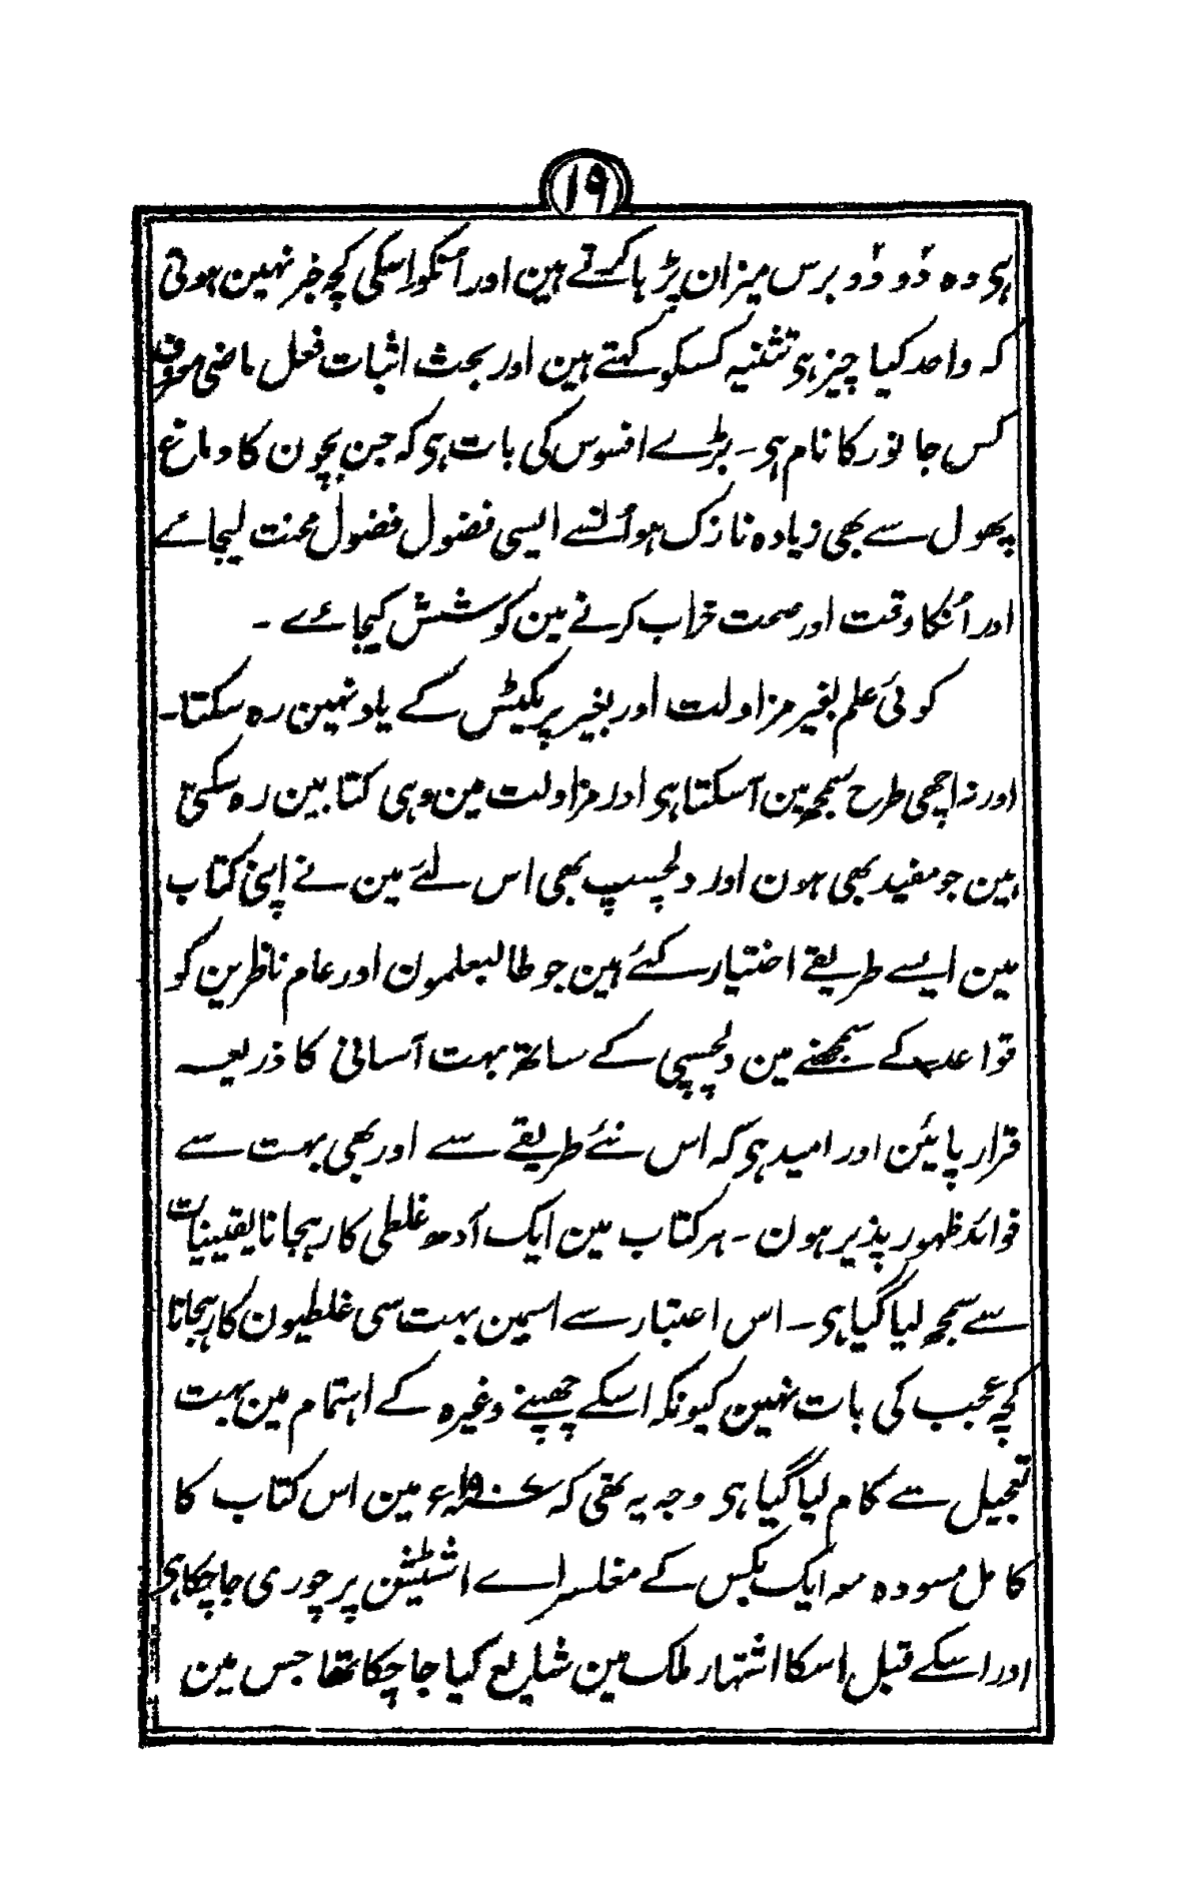 ۱۹
ہی وہ دو دو برس میزان پڑہا کرتے ہین اور انکو اسکی کچھ خبر نہین ہوتی
کہ واحد کیا چیز ہی تثنیہ کسکو کہتے ہین اور بحث اثبات فعل ماضی معروف
کس جانور کا نام ہی۔ بڑے افسوس کی بات ہی کہ جن بچون کا دماغ
پھول سے بھی زیادہ نازک ہو اُنسے ایسی فضول فضول محنت لیجائے
اور اُنکا وقت اور صحت خراب کرنے مین کوشش کیجائے ۔
کوئی علم بغیر مزاولت اور بغیر پریکٹس کے یاد نہین رہ سکتا۔
اور نہ اچھی طرح سمجھ مین آسکتا ہی اور مزاولت مین وہی کتابین رہ سکتی
ہین جو مفید بھی ہون اور دلچسپ بھی اس لئے مین نے اپنی کتاب
مین ایسے طریقے اختیار کئے ہین جو طالبعلمون اور عام ناظرین کو
قواعد کے سمجھنے مین دلچسپی کے ساتھ بہت آسانی کا ذریعہ
قرار پائین اور امید ہی کہ اس نئے طریقے سے اور بھی بہت سے
فوائد ظہور پذیر ہون ۔ ہر کتاب مین ایک آدھ غلطی کا رہجانا یقینیات
سے سمجھ لیا گیا ہی۔ اس اعتبار سے اسمین بہت سی غلطیون کا رہجانا
کچھ عجب کی بات نہین کیونکہ اسکے چھپنے وغیرہ کے اہتمام مین بہت
تعجیل سے کام لیا گیا ہی وجہ یہ تھی کہ ۱۹۰۷ء مین اس کتاب کا
کامل مسودہ معہ ایک بکس کے مغلسراے اسٹیشن پر چوری جا چکا ہی
اور اسکے قبل اسکا اشتہار ملک مین شایع کیا جا چکا تھا جس مین